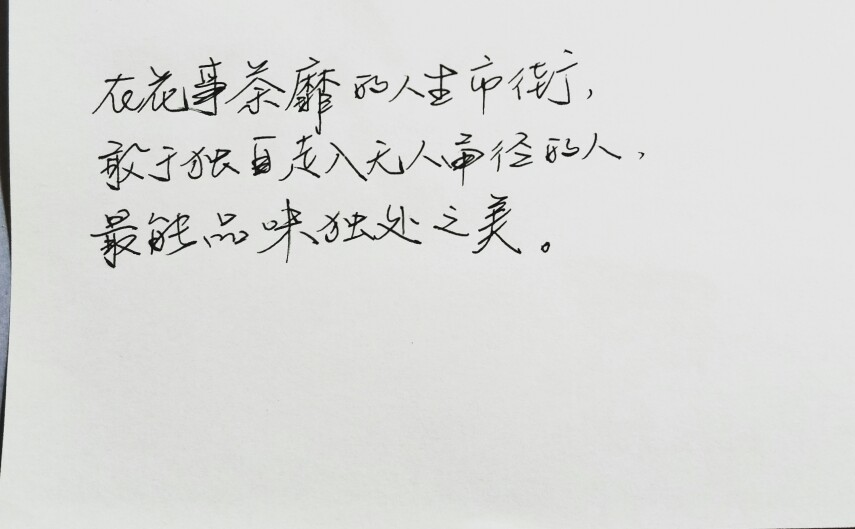 在花事荼靡的人生市街,
敢于独自走入无人幽径的人,
最能品味独处之美。